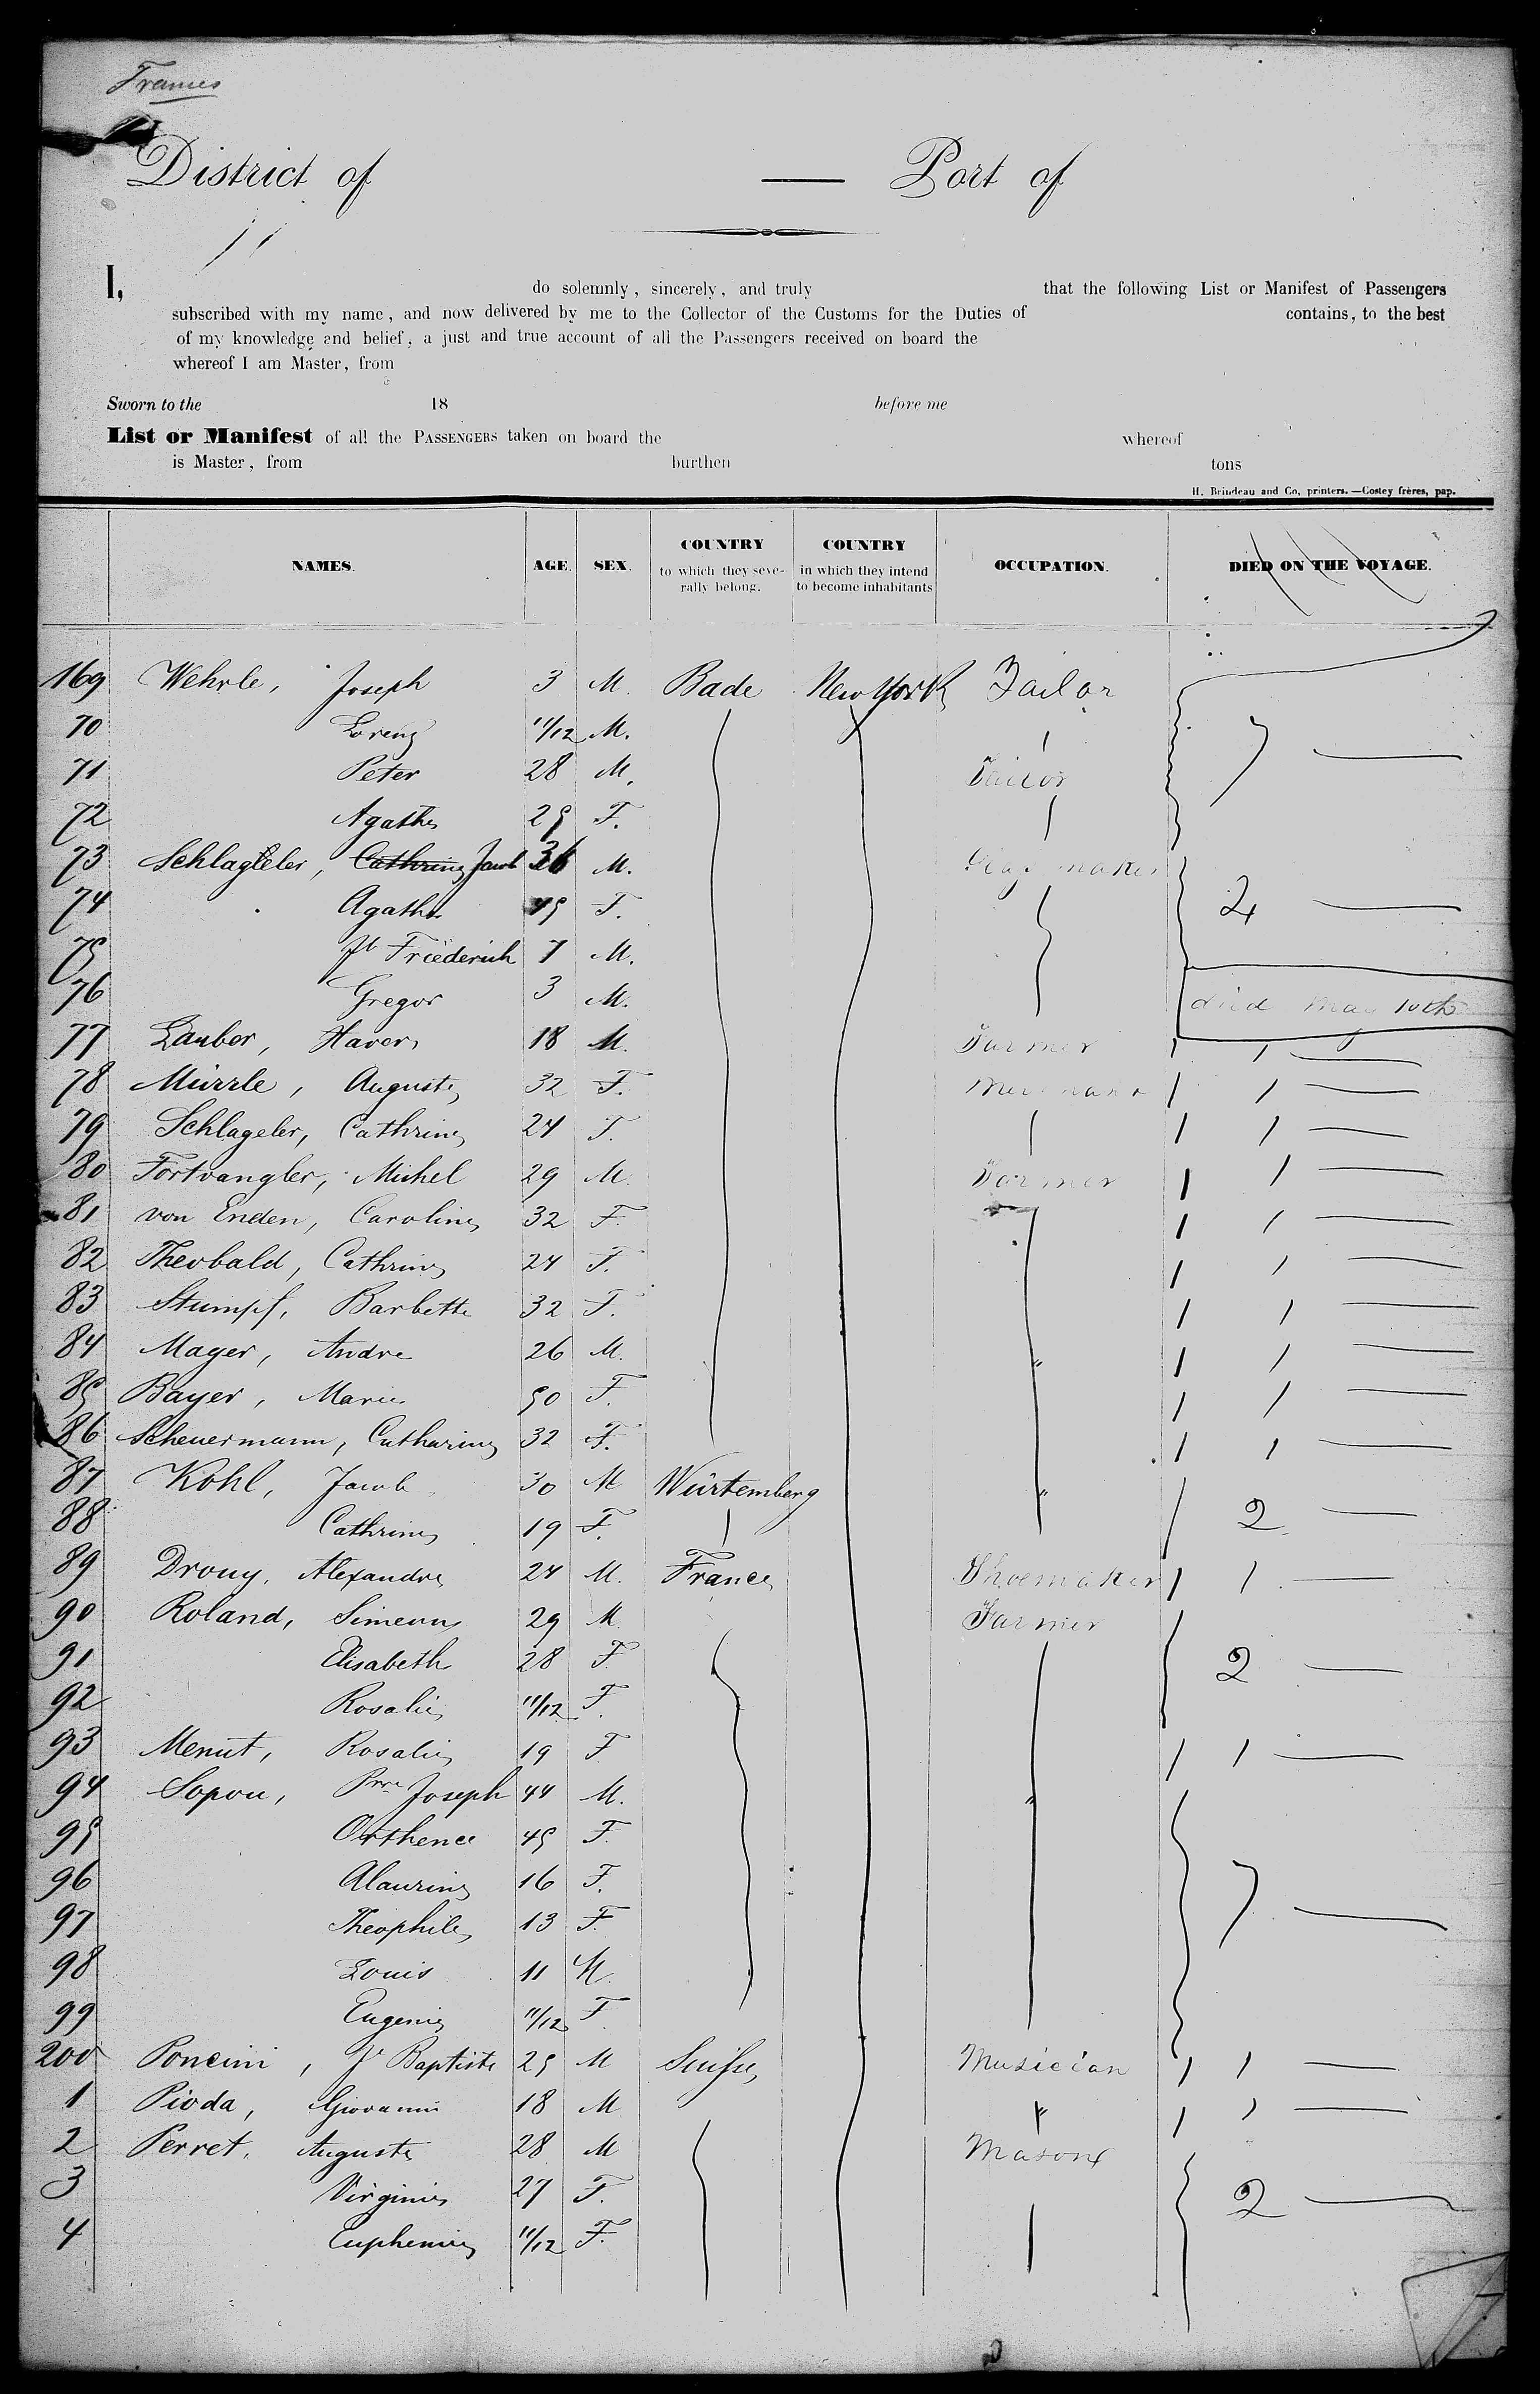 Frames
District of — Port of
I, do solemnly, sincerely, and truly that the following List or Manifest of Passengers
subscribed with my name, and now delivered by me to the Collector of the Customs for the Duties of contains, to the best
of my knowledge and belief, a just and true account of all the Passengers received on board the
whereof I am Master, from
Sworn to the 18 before me
List or Manifest of all the Passengers taken on board the whereof
is Master, from burthen tons
H. Brindeau and Co, printers. — Costey frères, pap.
NAMES. AGE. SEX. COUNTRY to which they seve- rally belong. COUNTRY in which they intend to become inhabitants OCCUPATION. DIED ON THE VOYAGE.
169 Wehrle, Joseph 3 M. Bade New York Tailor
70 Lorenz 11/12 M.
71 Peter 28 M. Tailor 7 —
72 Agathe 25 F.
73 Schlagteler, Cathrine Jacob 36 M.
74 Agathe 45 F. 4 —
75 Jb Friederich 7 M.
76 Gregor 3 M. died May 10th
77 Lauber, Xaver 18 M. Farmer 1 1 —
78 Mürrle, Auguste 32 F. Merchant 1 1 —
79 Schlageler, Cathrine 24 F. 1 1 —
80 Fortvangler, Michel 29 M. Farmer 1 1 —
81 von Enden, Caroline 32 F. 1 1 —
82 Theobald, Cathrine 24 F. 1 1 —
83 Stumpf, Barbette 32 F. 1 1 —
84 Mayer, Andre 26 M. " 1 1 —
85 Bayer, Marie 50 F. 1 1 —
86 Scheuermann, Catharine 32 F. 1 1 —
87 Kohl, Jacob 30 M Würtemberg "
88 Cathrine 19 F. 2 —
89 Drouy, Alexandre 24 M. France Shoemaker 1 1 —
90 Roland, Simeon 29 M Farmer
91 Elisabeth 28 F 2 —
92 Rosalie 11/12 F.
93 Menut, Rosalie 19 F 1 1 —
94 Sopou, Prre Joseph 44 M. "
95 Orthence 45 F.
96 Alaurine 16 F.
97 Theophile 13 F. 7 —
98 Louis 11 M.
99 Eugenie 11/12 F
200 Poncini, Jn Baptiste 25 M Suisse Musician 1 1 —
1 Pioda, Giovanni 18 M " 1 1 —
2 Perret, Auguste 28 M Mason
3 Virginie 27 F. 2 —
4 Euphemie 11/12 F.